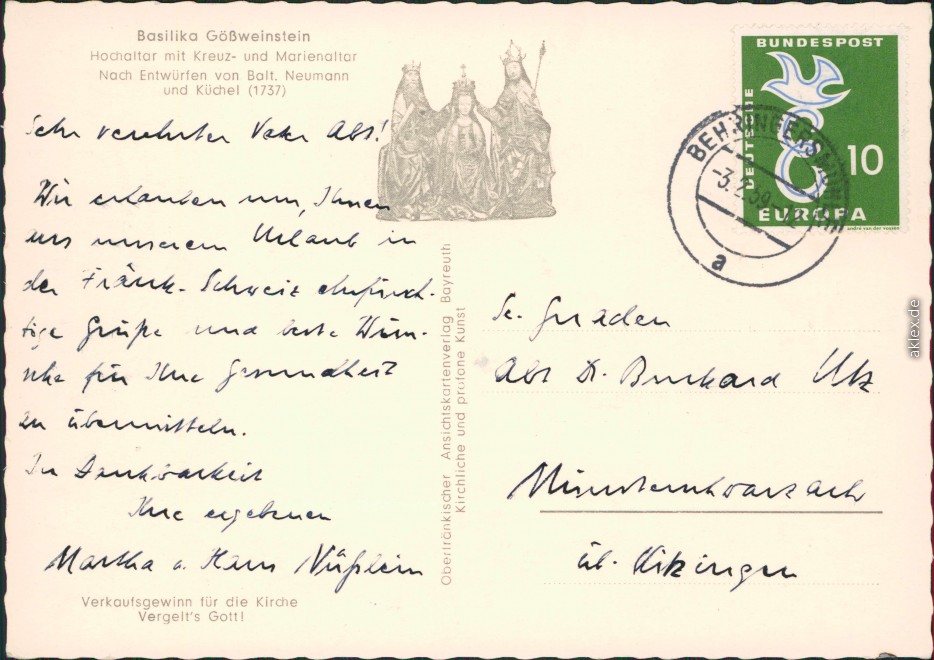 Basilika Gößweinstein
Hochaltar mit Kreuz- und Marienaltar
Nach Entwürfen von Balt. Neumann
und Küchel (1737)
Sehr verehrter Vater Abt!
Wir erlauben uns, Ihnen
aus unserem Urlaub in
der Fränk. Schweiz ehrfürch-
tige Grüße und beste Wün-
sche für Ihre Gesundheit
zu übermitteln.
In Dankbarkeit
Ihre ergebenen
Martha u. Hans Nüßlein
Verkaufsgewinn für die Kirche
Vergelt's Gott!
Oberfränkischer Ansichtskartenverlag Bayreuth
Kirchliche und profane Kunst
DEUTSCHE
BUNDESPOST
10
EUROPA
BEHRINGERSMÜHLE
-3.2.59.-12
a
Sr. Gnaden
Abt Dr. Burkard Utz
Münsterschwarzach
üb. Kitzingen
aklex.de